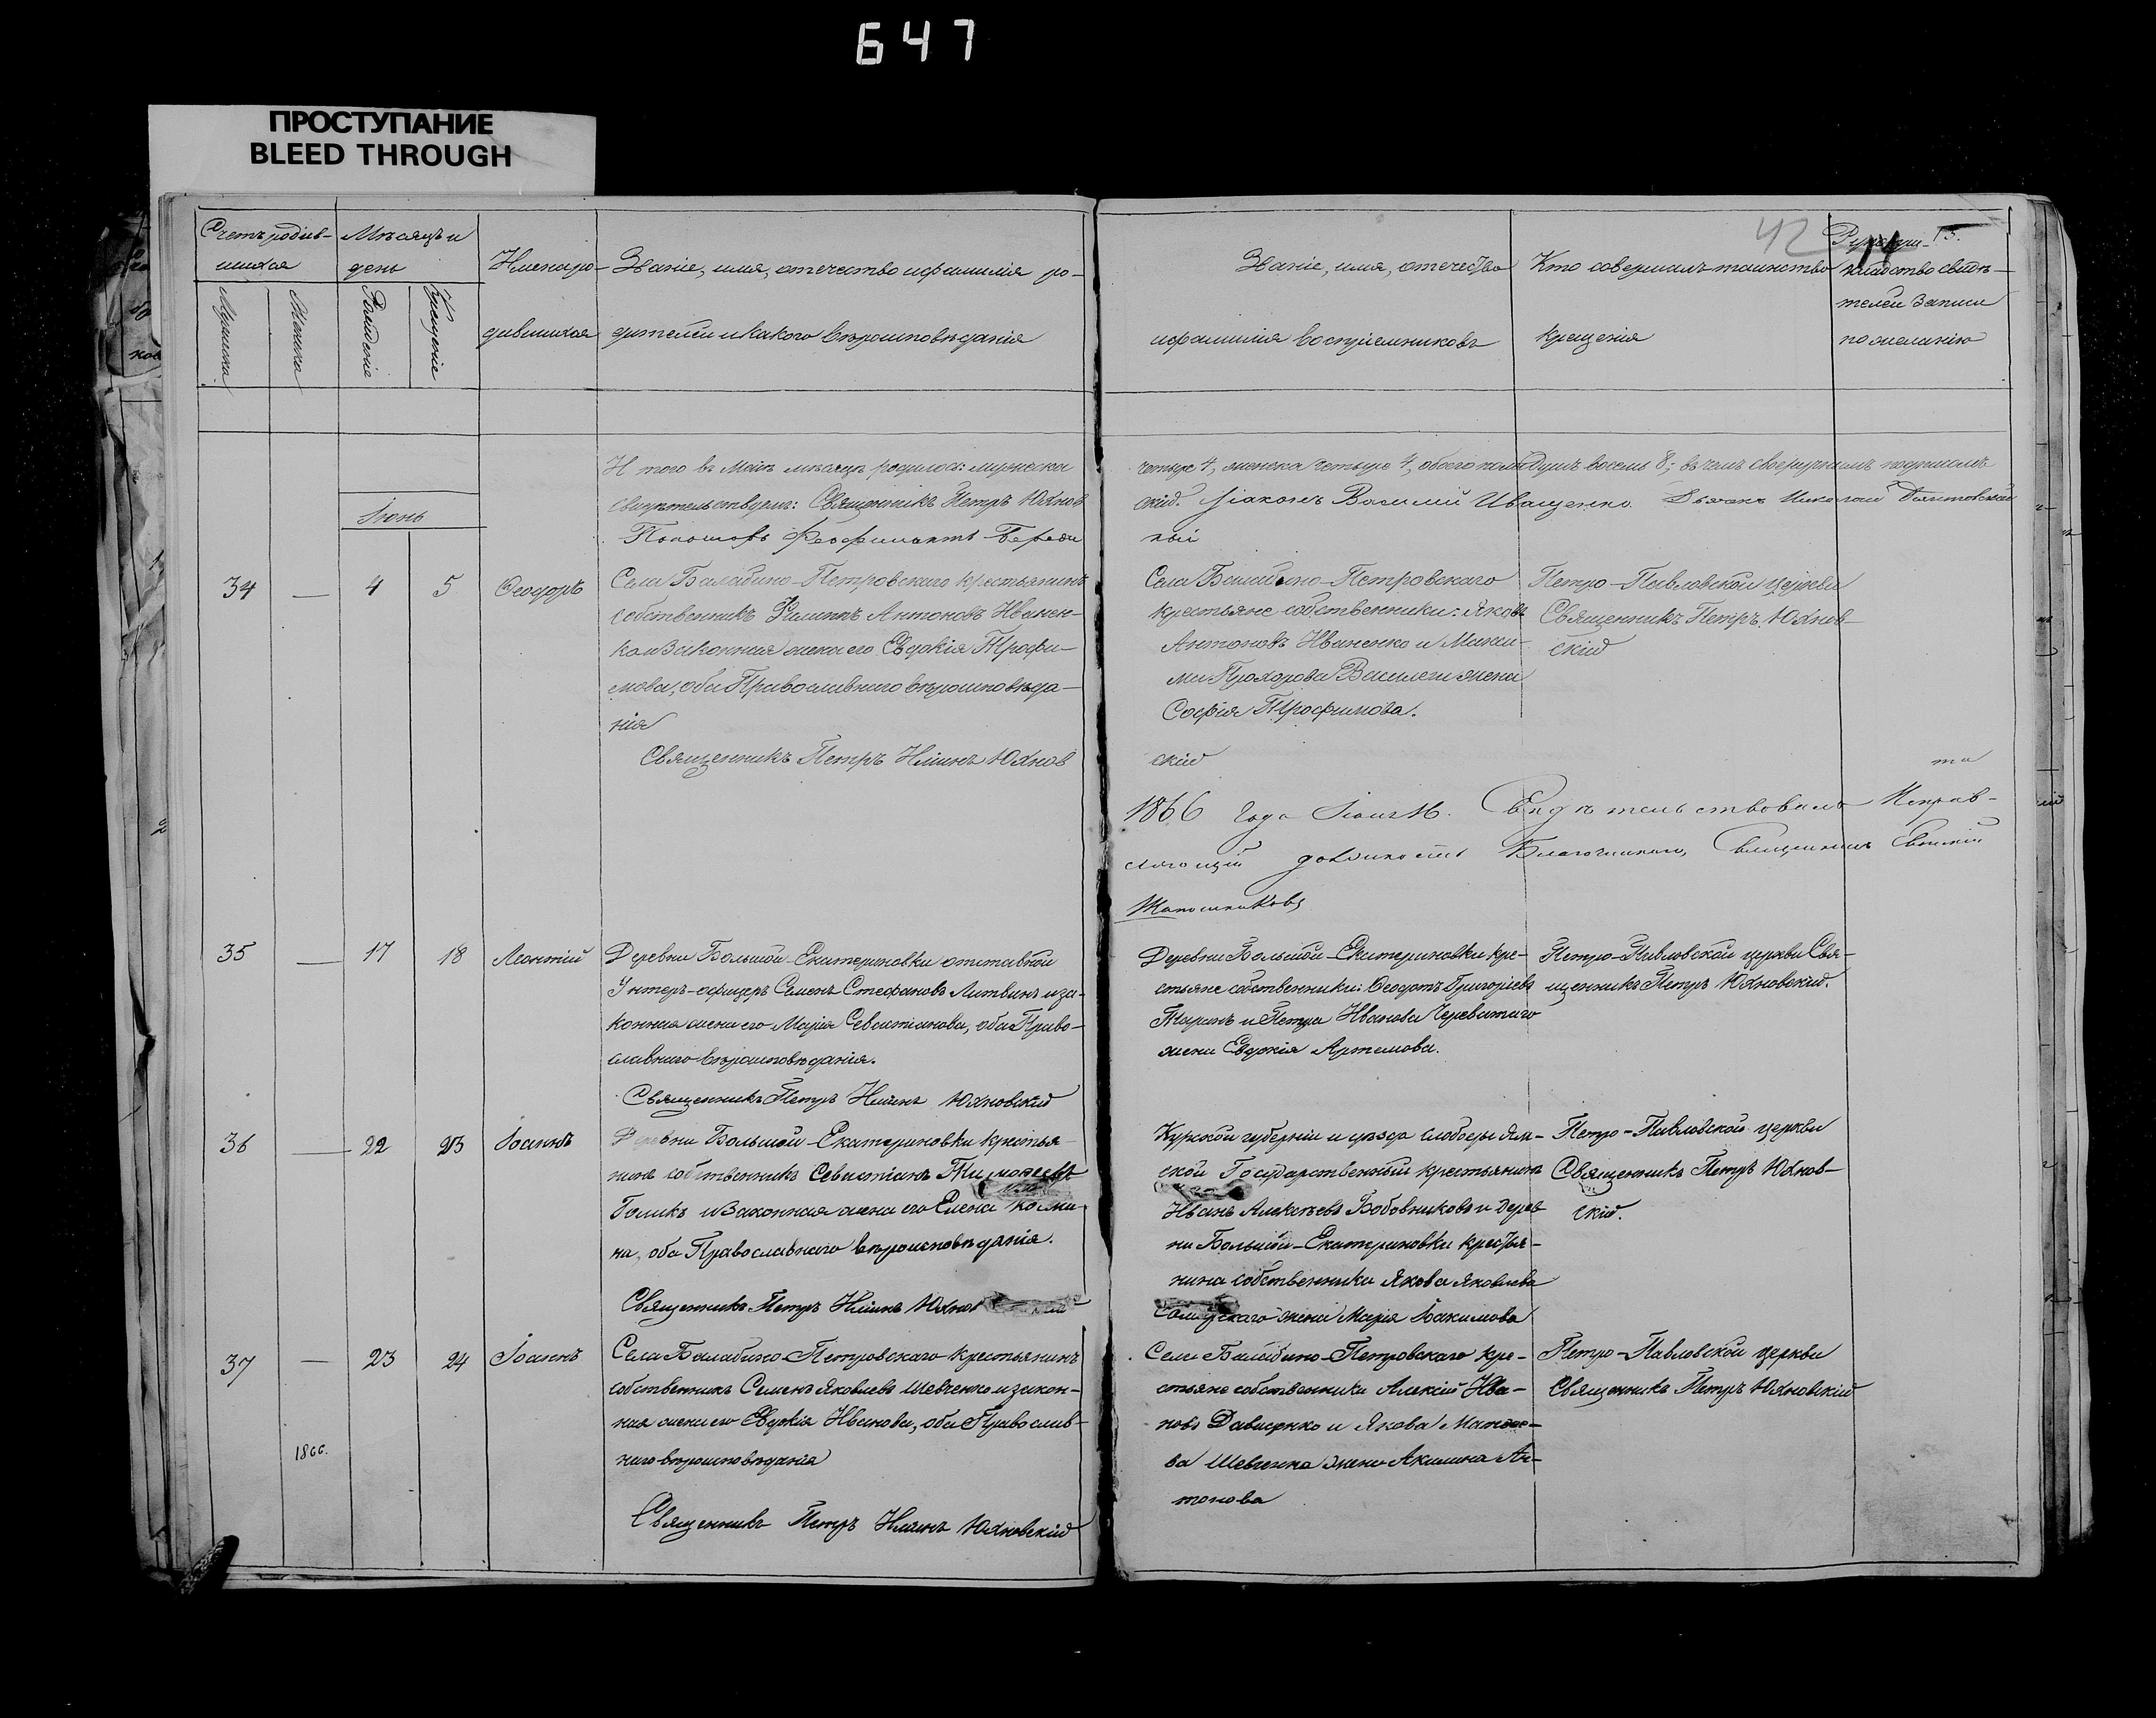 647
ПРОСТУПАНИЕ
BLEED THROUGH
Счетъ родив-
шихся
Мѣсяцъ и
день
Имена ро-
дившихся
Званіе, имя, отечество и фамилія ро-
дителей и какого вѣроисповѣданія
Мужеска
Женска
Рожденіе
Крещеніе
42
15.
Званіе, имя, отечество
и фамилія воспріемниковъ
Кто совершалъ таинство
крещенія
Рукопри-
кладство свидѣ-
телей записи
по желанію
И того въ Маѣ мѣсяцѣ родилось: мужеска
свидѣтельствуемъ: Священникъ Петръ Юхнов
Пономарь Феофилактъ
четыре 4, женска четыре 4, обоего пола душъ восемь 8; въ чемъ своеручнымъ подписомъ
скій. Діаконъ Василій Иващенко. Дьячекъ Николай
кій
Іюнь
34 — 4 5 Ѳеодоръ
Села Балабино-Петровскаго крестьянинъ
собственникъ Филиппъ Антоновъ Иванен-
ко и законная жена его Евдокія Трофи-
мова, оба Православнаго вѣроисповѣда-
нія
Священникъ Петръ Іліинъ Юхнов
Села Балабино-Петровскаго
крестьяне собственники: Яковъ
Антоновъ Иваненко и Макси-
ма Прохорова жена
Софія Трофимова.
скій
Петро-Павловской церкви
Священникъ Петръ Юхнов-
скій
1866 года Свидѣтельствовалъ Исправ-
ляющій должность Благочиннаго, Священникъ Евгеній
35 — 17 18 Леонтій
Деревни Большой-Екатериновки отставной
Унтеръ-офицеръ Семенъ Стефановъ Литвинъ и за-
конная жена его Марія Севастіанова, оба Право-
славнаго вѣроисповѣданія.
Священникъ Петръ Іліинъ Юхновскій
Деревни Большой-Екатериновки кре-
стьяне собственники: Ѳеодотъ Григоріевъ
и Петра Иванова Череватаго
жена Евдокія Артемова.
Петро-Павловской церкви Свя-
щенникъ Петръ Юхновскій.
36 — 22 23 Іоаннъ
Деревни Большой-Екатериновки крестья-
нинъ собственникъ Севастіанъ Тимофеевъ
Голикъ и законная жена его Елена Косми-
на, оба Православнаго вѣроисповѣданія.
Священникъ Петръ Іліинъ Юхнов
Курской губерніи и уѣзда слободы Ям-
ской Государственный крестьянинъ
Иванъ Алексѣевъ Бобовниковъ и дерев
ни Большой-Екатериновки крестья-
нина собственника Якова Яковлева
жена Марія Іоакимова
Петро-Павловской церкви
Священникъ Петръ Юхнов-
скій.
37 — 23 24 Іоаннъ
Села Балабино-Петровскаго крестьянинъ
собственникъ Семенъ Яковлевъ Шевченко и закон-
ная жена его Евдокія Иванова, оба Православ-
наго вѣроисповѣданія
Священникъ Петръ Іліинъ Юхновскій
1866.
Села Балабино-Петровскаго кре-
стьяне собственники Алексій Ива-
новъ Давиденко и Якова Матвѣе-
ва Шевченка жена Акилина Ан-
тонова
Петро-Павловской церкви
Священникъ Петръ Юхновскій